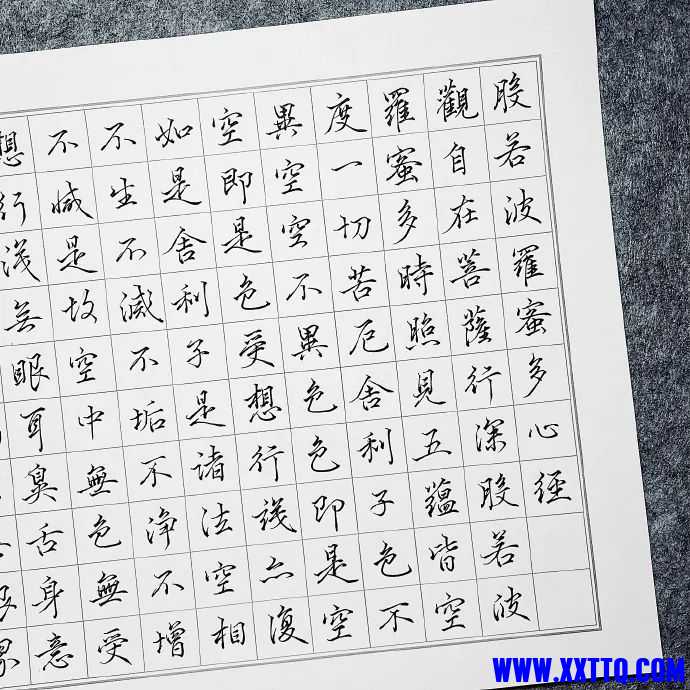 般若波羅蜜多心經
觀自在菩薩行深般若波
羅蜜多時照見五蘊皆空
度一切苦厄舍利子色不
異空空不異色色即是空
空即是色受想行識亦復
如是舍利子是諸法空相
不生不滅不垢不淨不增
不減是故空中無色無受
想行識無眼耳鼻舌身意
WWW.XXTTQ.COM